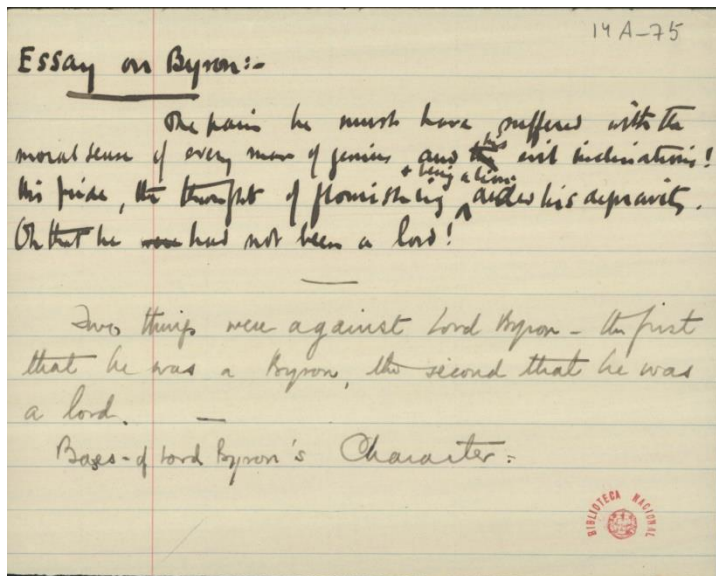 14 A-75
Essay on Byron:-
The pain he must have suffered with the
moral sense of every man of genius and his evil inclinations!
His pride, the thought of flourishing + being a lion, aided his depravity.
Oh that he had not been a lord!
Two things were against Lord Byron - the first
that he was a Byron, the second that he was
a lord.
Bases of Lord Byron's Character:
BIBLIOTECA NACIONAL